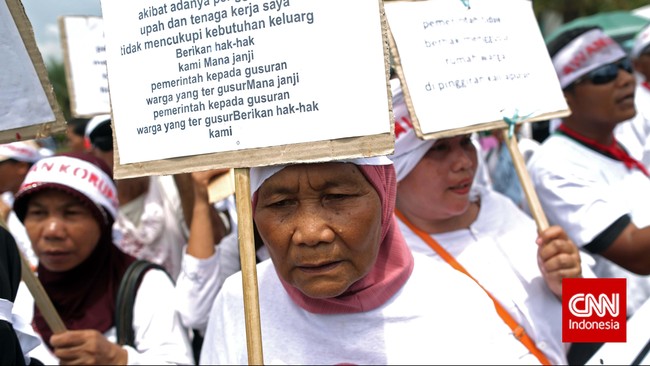 akibat adanya
upah dan tenaga kerja saya
tidak mencukupi kebutuhan keluarg
Berikan hak-hak
kami Mana janji
pemerintah kepada gusuran
warga yang ter gusurMana janji
pemerintah kepada gusuran
warga yang ter gusurBerikan hak-hak
kami
pemerintah tidak
berhak menggusur
rumah warga
dipinggiran kali apuran
CNN
Indonesia